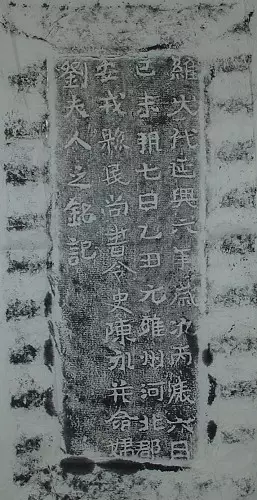 維大代延興六年歲次丙辰六月
己未朔七日乙丑元雍州河北郡
安戎縣民尚書令史陳永并命婦
劉夫人之銘記